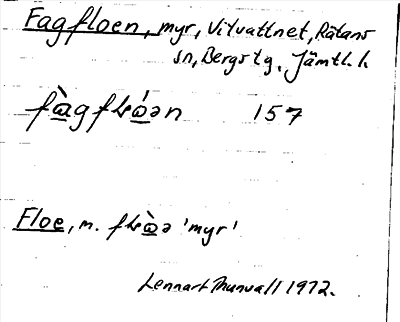 Fagfloen, myr, Vitvattnet, Rätans
sn, Bergs tg, Jämtl. l.
fàgflóən 157
Floe, m. flòə 'myr'
Lennart Thunvall 1972.